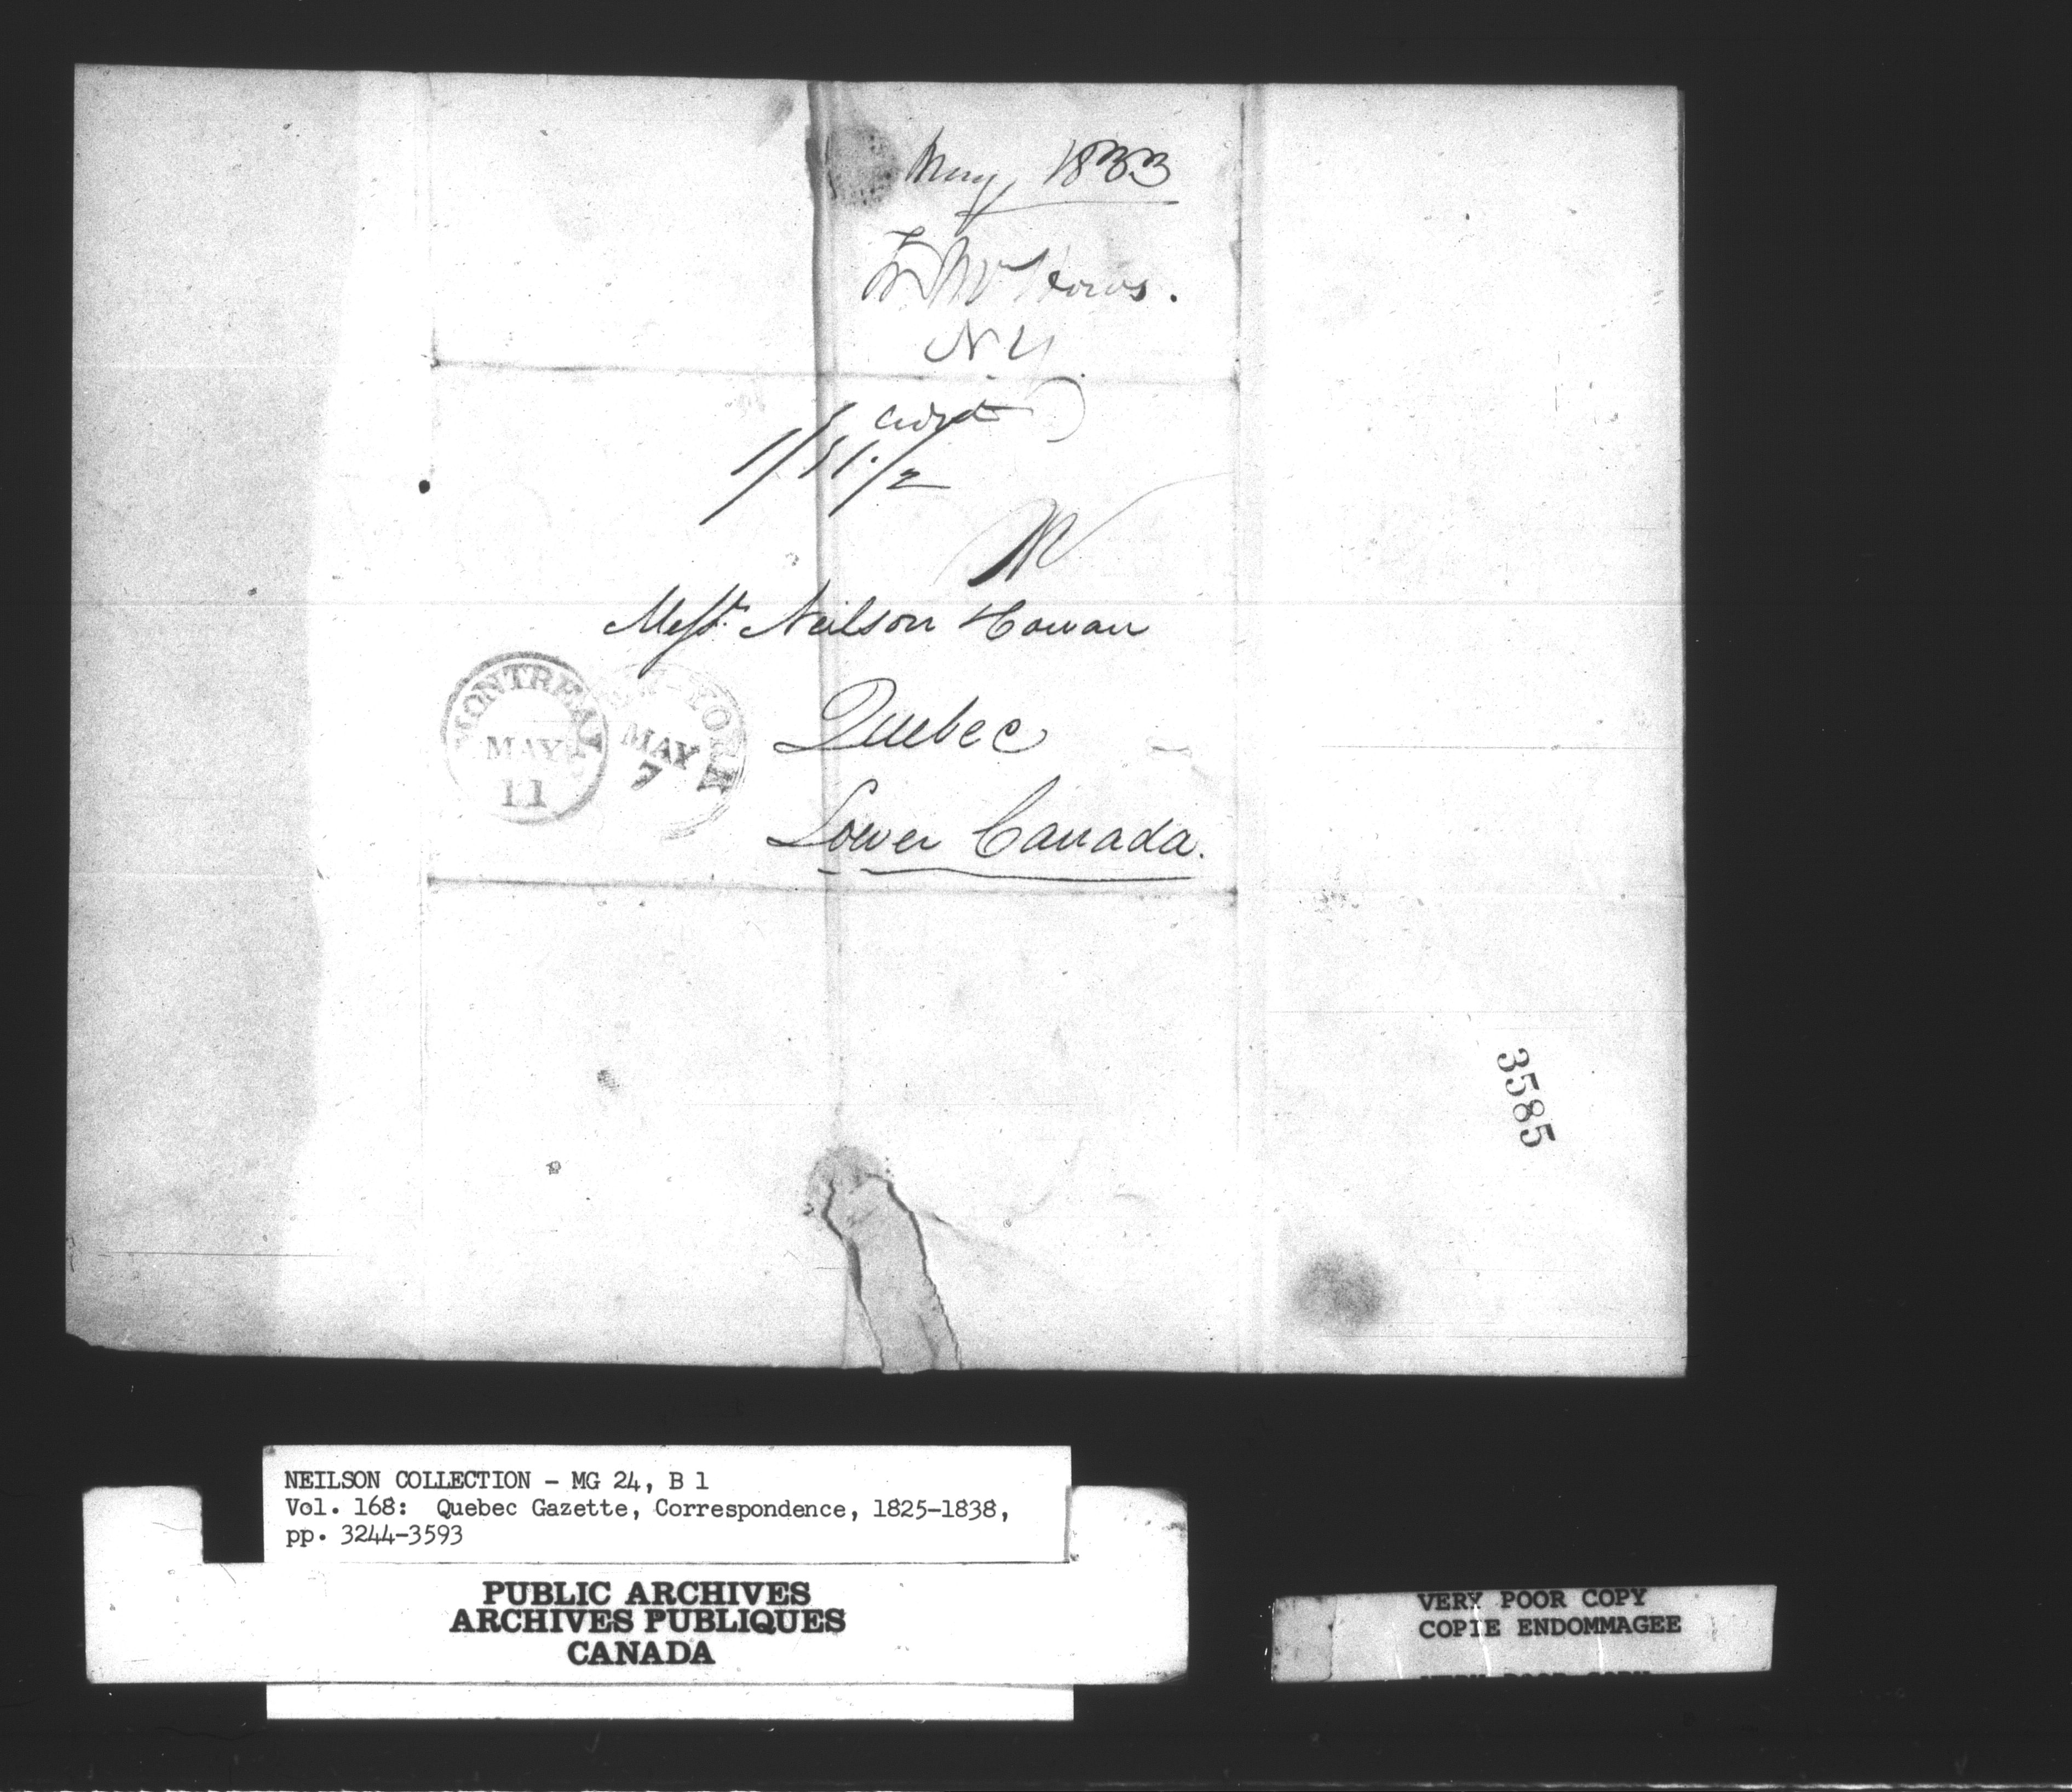 May, 1833
N Y
1/5 1/2
Messrs. Neilson & Cowan
MONTREAL
MAY
11
NEW-YORK
MAY
7
Quebec
Lower Canada.
3585
NEILSON COLLECTION - MG 24, B 1
Vol. 168: Quebec Gazette, Correspondence, 1825-1838,
pp. 3244-3593
PUBLIC ARCHIVES
ARCHIVES PUBLIQUES
CANADA
VERY POOR COPY
COPIE ENDOMMAGEE
VERY POOR COPY